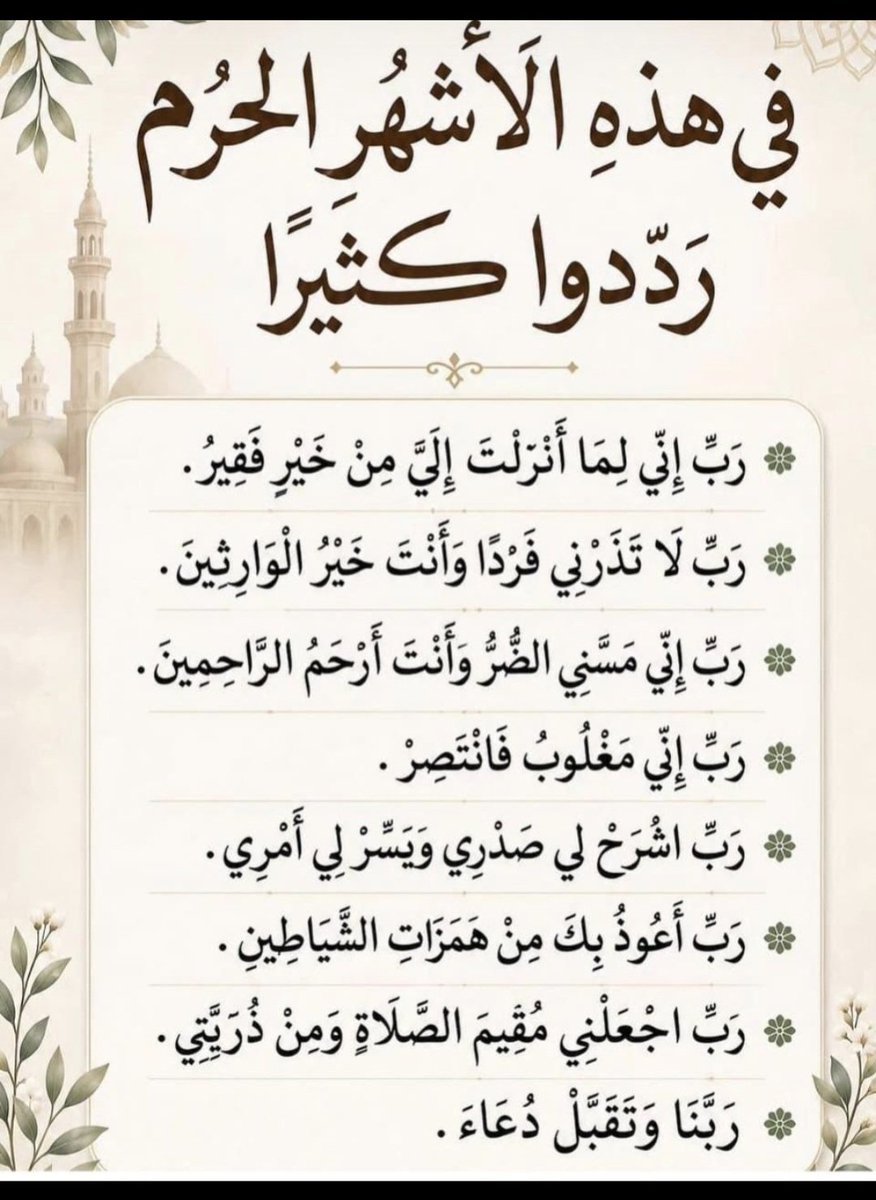 في هذهِ الَأشهُرِ الحرُم
رَدّدوا كثيَرًا
رَبِّ إِنّي لِمَا أَنْزَلْتَ إِلَيَّ مِنْ خَيْرٍ فَقِيرُ.
رَبِّ لَا تَذَرْنِي فَرْدًا وَأَنْتَ خَيْرُ الْوَارِثِينَ.
رَبِّ إِنّي مَسَّنِي الضُّرُّ وَأَنْتَ أَرْحَمُ الرَّاحِمِينَ.
رَبِّ إِنّي مَغْلُوبُ فَانْتَصِرْ.
رَبِّ اشْرَحْ لي صَدْرِي وَيَسِّرْ لِي أَمْرِي.
رَبِّ أَعُوذُ بِكَ مِنْ هَمَزَاتِ الشَّيَاطِينِ.
رَبِّ اجْعَلْنِي مُقِيمَ الصَّلَاةِ وَمِنْ ذُرَيَّتِي.
رَبَّنَا وَتَقَبَّلْ دُعَاءَ.